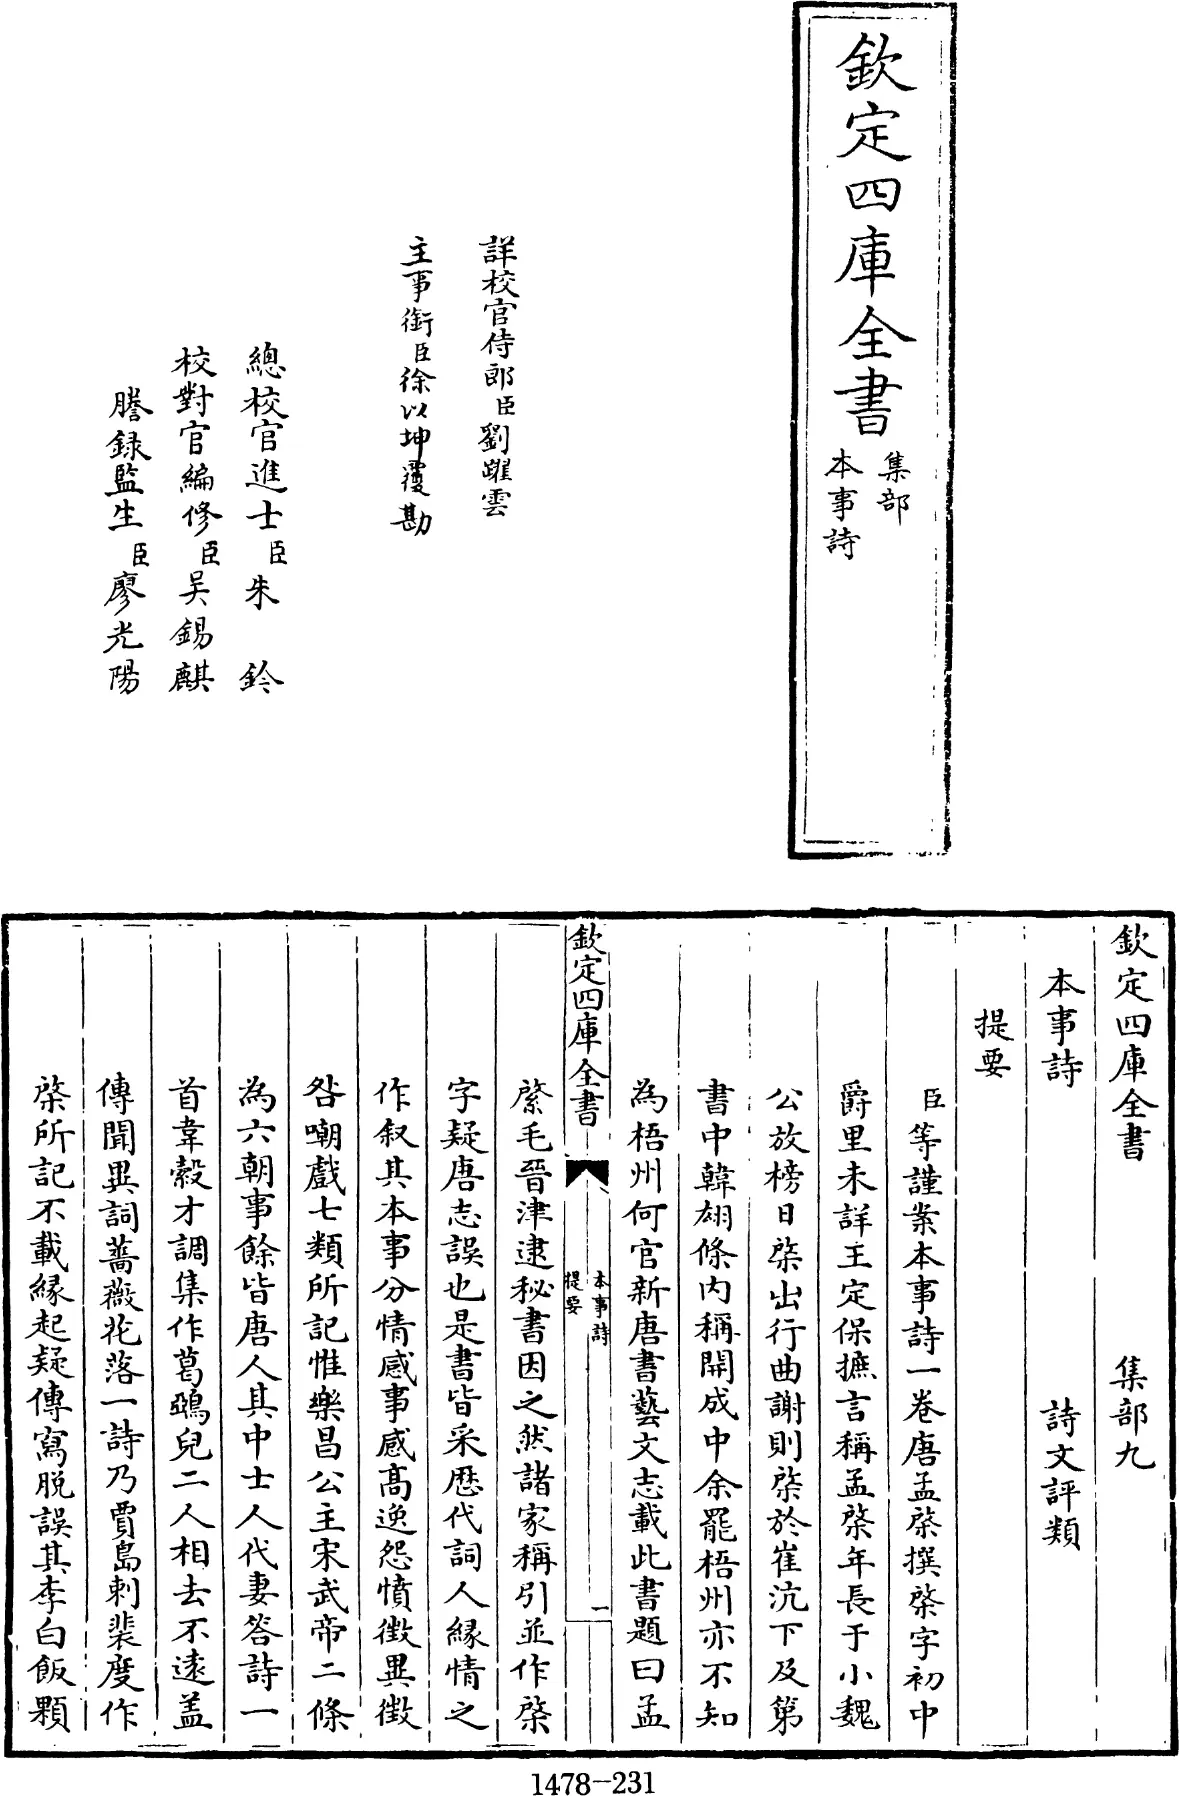 欽定四庫全書
集部
本事詩
詳校官侍郎臣劉躍雲
主事銜臣徐以坤覆勘
總校官進士臣朱鈐
校對官編修臣吴錫麒
謄録監生臣廖光陽
欽定四庫全書 集部九
本事詩 詩文評類
提要
臣等謹案本事詩一卷唐孟棨撰棨字初中
爵里未詳王定保摭言稱孟棨年長于小魏
公放榜日棨出行曲謝則棨於崔沆下及第
書中韓翃條内稱開成中余罷梧州亦不知
為梧州何官新唐書藝文志載此書題曰孟
欽定四庫全書
本事詩
提要
一
綮毛晉津逮秘書因之然諸家稱引並作棨
字疑唐志誤也是書皆采歴代詞人縁情之
作叙其本事分情感事感高逸怨憤徴異徴
咎嘲戲七類所記惟樂昌公主宋武帝二條
為六朝事餘皆唐人其中士人代妻答詩一
首韋縠才調集作葛鵶兒二人相去不逺盖
傳聞異詞薔薇花落一詩乃賈島刺裴度作
棨所記不載縁起疑傳寫脱誤其李白飯顆
1478-231